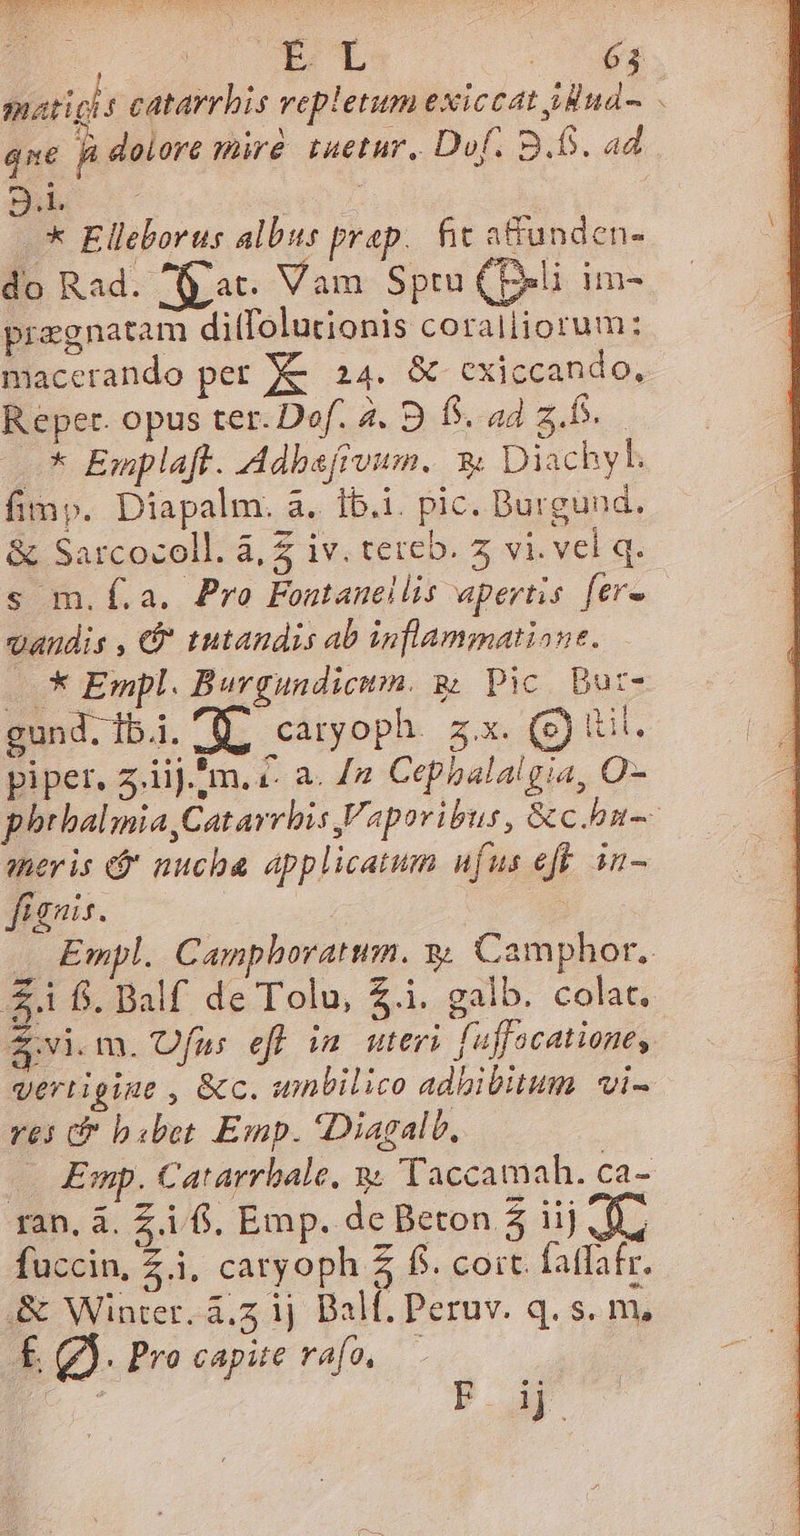 E L 63
maticis catarrhis repletum exiccat, illud-
que à dolore mirè tuetur. Dos. ℈.ß. ad
℈.i.
* Elleborus albus præp. fit affunden-
do Rad. at. Vam Sptu li im-
prægnatam dissolutionis coralliorum:
macerando per 24. & exiccando,
Repet. opus ter. Dos. à. ℈ ß. ad ʒ.ß.
* Emplast. Adhæsivum. ℞ Diachyl.
simp. Diapalm. ā. ℔.i. pic. Burgund.
& Sarcocoll. ā, ℥ iv. tereb. ℥ vi. vel q.
s m. s. a. Pro Fontanellis apertis ser-
vandis, & tutandis ab inflammatione.
* Empl. Burgundicum. ℞ Pic Bur-
gund. ℔.i. caryoph ʒ.x. stil.
piper. ʒ.iij. m. s. a. In Cephalalgia, O-
phthalmia, Catarrhis, Vaporibus, &c. hu-
meris & nuchæ applicatum usus est in-
signis.
Empl. Camphoratum. ℞ Camphor.
℥.i ß. Bals de Tolu, ℥.i. galb. colat.
℥.vi. m. Usus est in uteri suffocatione,
vertigine, &c. umbilico adhibitum vi-
res & habet Emp. Diagalb.
Emp. Catarrhale. ℞ Taccamah. ca-
ran. ā. ℥.i ß. Emp. de Beton ℥ iij
succin, ℥.i, caryoph ℥ ß. cort. sassafr.
& Winter. ā. ʒ ij Bals. Peruv. q. s. m.
f. Pro capite raso.
F ij